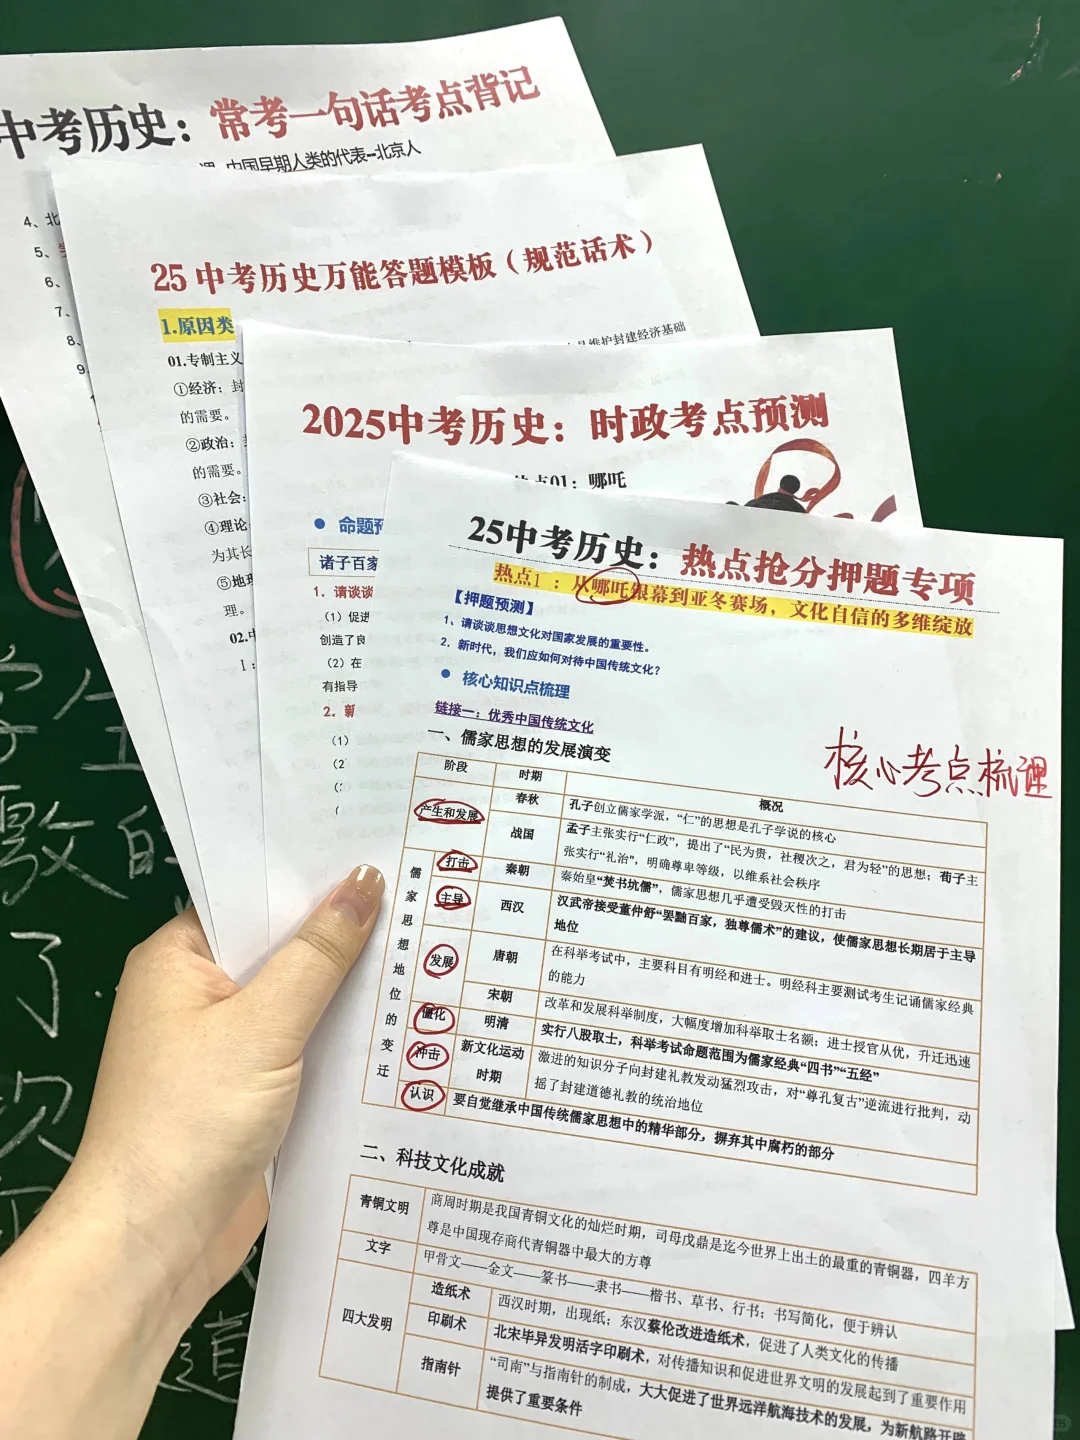 中考历史：常考一句话考点背记
中国早期人类的代表--北京人
4、北
5、
6、
7、
8、
9
25中考历史万能答题模板（规范话术）
1.原因类
维护封建经济基础
01.专制主义
①经济：封
的需要。
②政治：
的需要。
③社会：
④理论
为其长
⑤地理
理。
02.中
2025中考历史：时政考点预测
热点01：哪吒
命题预
诸子百家
1．请谈谈
（1）促进
创造了良
（2）在
有指导
2．新
（1）
（2
25中考历史：热点抢分押题专项
热点1：从哪吒银幕到亚冬赛场，文化自信的多维绽放
【押题预测】
1、请谈谈思想文化对国家发展的重要性。
2．新时代，我们应如何对待中国传统文化？
核心知识点梳理
链接一：优秀中国传统文化
一、儒家思想的发展演变
核心考点梳理
阶段 时期 概况
儒家思想地位的变迁
产生和发展 春秋 孔子创立儒家学派，“仁”的思想是孔子学说的核心
战国 孟子主张实行“仁政”，提出了“民为贵，社稷次之，君为轻”的思想；荀子主
张实行“礼治”，明确尊卑等级，以维系社会秩序
打击 秦朝 秦始皇“焚书坑儒”，儒家思想几乎遭受毁灭性的打击
主导 西汉 汉武帝接受董仲舒“罢黜百家，独尊儒术”的建议，使儒家思想长期居于主导
地位
发展 唐朝 在科举考试中，主要科目有明经和进士。明经科主要测试考生记诵儒家经典
的能力
宋朝 改革和发展科举制度，大幅度增加科举取士名额；进士授官从优，升迁迅速
僵化 明清 实行八股取士，科举考试命题范围为儒家经典“四书”“五经”
冲击 新文化运动 激进的知识分子向封建礼教发动猛烈攻击，对“尊孔复古”逆流进行批判，动
时期 摇了封建道德礼教的统治地位
认识 要自觉继承中国传统儒家思想中的精华部分，摒弃其中腐朽的部分
二、科技文化成就
青铜文明 商周时期是我国青铜文化的灿烂时期，司母戊鼎是迄今世界上出土的最重的青铜器，四羊方
尊是中国现存商代青铜器中最大的方尊
文字 甲骨文——金文——篆书——隶书——楷书、草书、行书；书写简化，便于辨认
四大发明 造纸术 西汉时期，出现纸；东汉蔡伦改进造纸术，促进了人类文化的传播
印刷术 北宋毕昇发明活字印刷术，对传播知识和促进世界文明的发展起到了重要作用
指南针 “司南”与指南针的制成，大大促进了世界远洋航海技术的发展，为新航路开辟
提供了重要条件
学生
的
了.
次
道